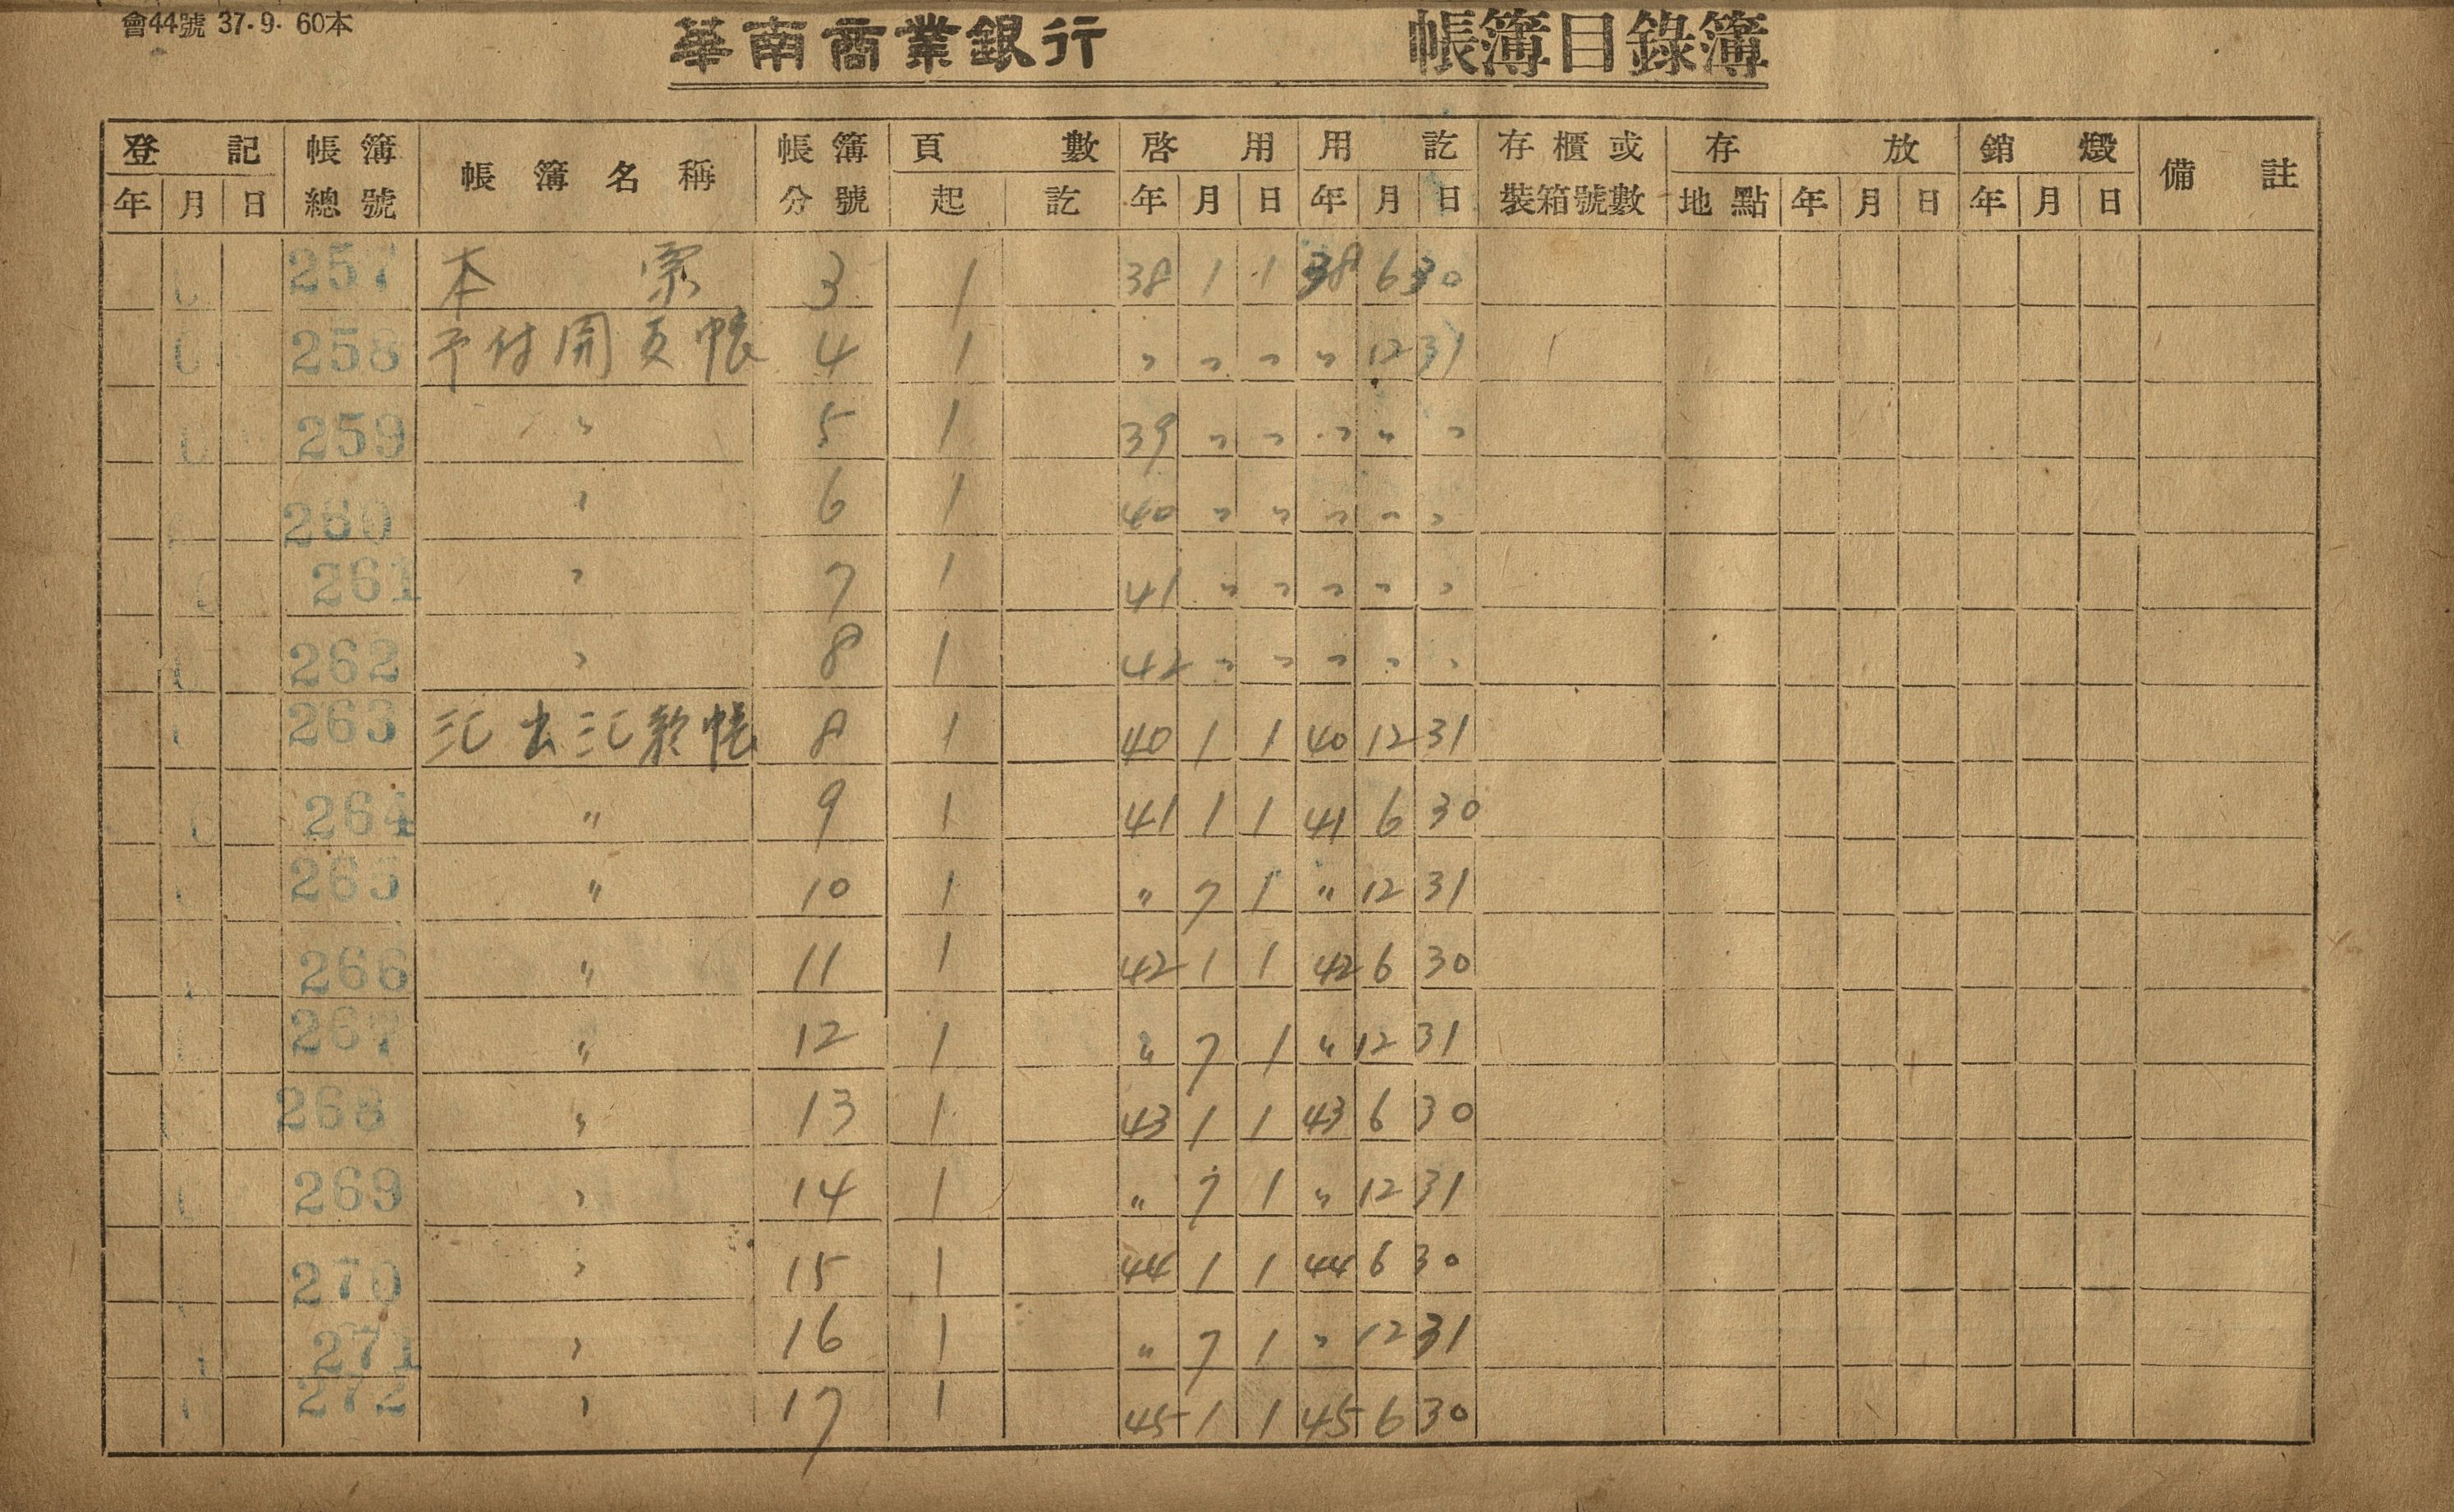 會44號 37.9. 60本
華南商業銀行 帳簿目錄簿
登記 帳簿 帳簿名稱 帳簿 頁數 啓用 用訖 存櫃或 存放 銷燬 備註
年 月 日 總號 分號 起 訖 年 月 日 年 月 日 裝箱號數 地點 年 月 日 年 月 日
257 本 3 1 38 1 1 38 6 30
258 付 帳 4 1 〃 〃 〃 〃 12 31
259 〃 5 1 39 〃 〃 〃 〃 〃
260 〃 6 1 40 〃 〃 〃 〃 〃
261 〃 7 1 41 〃 〃 〃 〃 〃
262 〃 8 1 42 〃 〃 〃 〃 〃
263 汇出汇款帳 8 1 40 1 1 40 12 31
264 〃 9 1 41 1 1 41 6 30
265 〃 10 1 〃 7 1 〃 12 31
266 〃 11 1 42 1 1 42 6 30
267 〃 12 1 〃 7 1 〃 12 31
268 〃 13 1 43 1 1 43 6 30
269 〃 14 1 〃 7 1 〃 12 31
270 〃 15 1 44 1 1 44 6 30
271 〃 16 1 〃 7 1 〃 12 31
272 〃 17 1 45 1 1 45 6 30